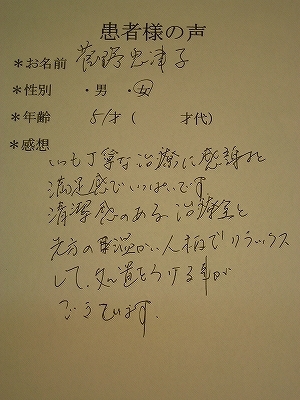 患者様の声
*お名前 菅野恵津子
*性別 ・男 ・女
*年齢 51才( 才代)
*感想
いつも丁寧な治療に感謝と
満足感でいっぱいです
清潔感のある治療室と
先方の温かい人柄でリラックス
して、処置をうける事が
できています。